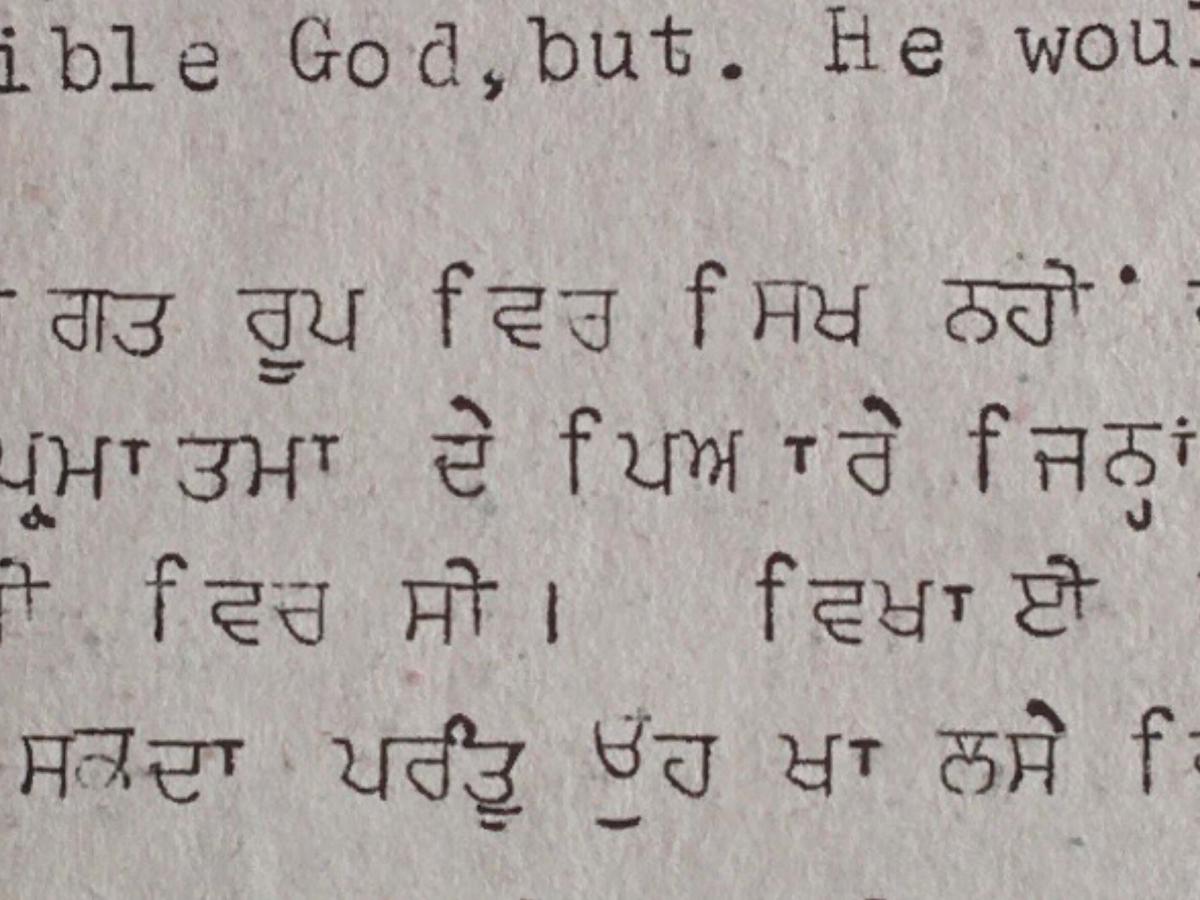 ible God,but. He woul
ਗਤ ਰੂਪ ਵਿਚ ਸਿਖ ਨਹੀਂ
ਪ੍ਰਮਾਤਮਾ ਦੇ ਪਿਆਰੇ ਜਿਨ੍ਹਾਂ
ਵਿਚ ਸੀ। ਵਿਖਾਈ
ਸਕਦਾ ਪਰੰਤੂ ਉਹ ਖਾਲਸੇ